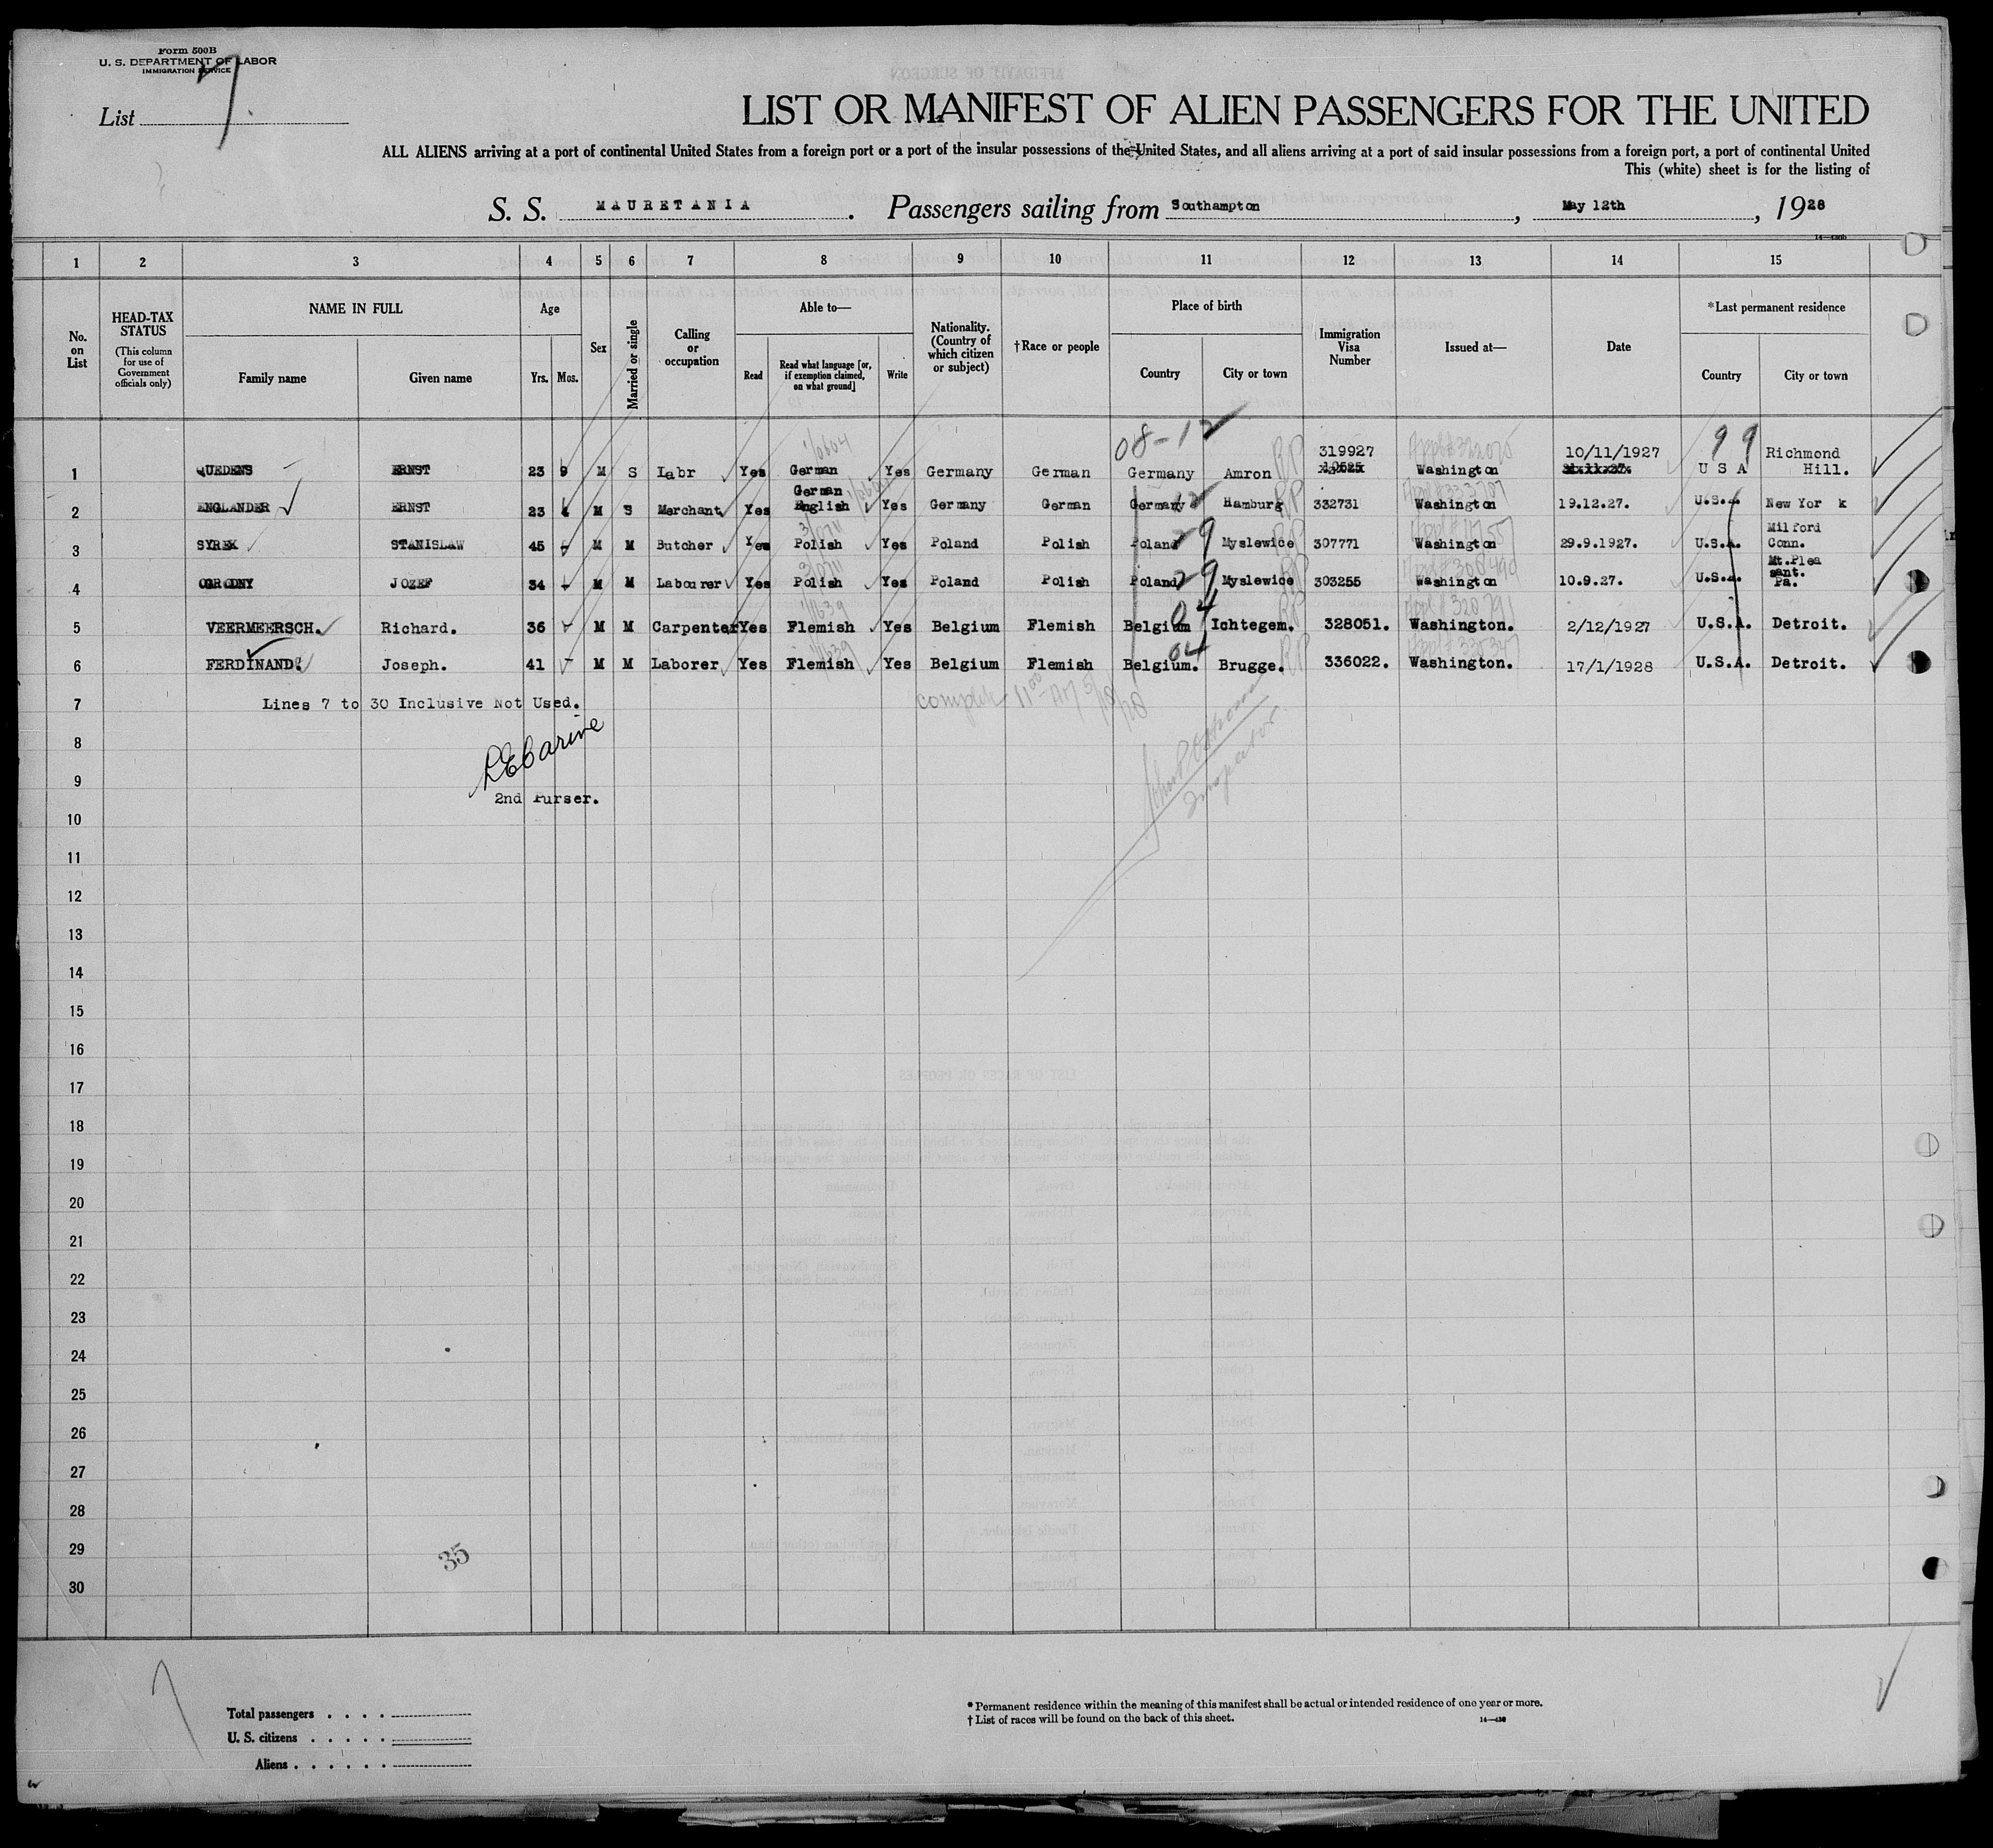 Form 500B
U. S. DEPARTMENT OF LABOR
IMMIGRATION SERVICE
List 7.
LIST OR MANIFEST OF ALIEN PASSENGERS FOR THE UNITED
ALL ALIENS arriving at a port of continental United States from a foreign port or a port of the insular possessions of the United States, and all aliens arriving at a port of said insular possessions from a foreign port, a port of continental United
This (white) sheet is for the listing of
S. S. MAURETANIA. Passengers sailing from Southampton, May 12th, 1928
1 2 3 4 5 6 7 8 9 10 11 12 13 14 15
No. on List
HEAD-TAX STATUS
(This column for use of Government officials only)
NAME IN FULL
Family name
Given name
Age
Yrs.
Mos.
Sex
Married or single
Calling or occupation
Able to—
Read
Read what language [or, if exemption claimed, on what ground]
Write
Nationality. (Country of which citizen or subject)
†Race or people
Place of birth
Country
City or town
Immigration Visa Number
Issued at—
Date
*Last permanent residence
Country
City or town
08-12
99
1 QUEDENS ERNST 23 9 M S Labr Yes German Yes Germany German Germany Amron 319927 Washington 10/11/1927 U S A Richmond Hill.
2 ENGLANDER ERNST 23 4 M S Merchant Yes German English Yes Germany German Germany 12 Hamburg 332731 Washington 19.12.27. U.S.A. New Yor k
3 SYREK STANISLAW 45 - M M Butcher Yes Polish Yes Poland Polish Poland 29 Myslewice 307771 Washington 29.9.1927. U.S.A. Milford Conn.
4 OGRODNY JOZEF 34 - M M Labourer Yes Polish Yes Poland Polish Poland 29 Myslewice 303255 Washington 10.9.27. U.S.A. Mt.Plea sant. Pa.
5 VEERMEERSCH. Richard. 36 - M M Carpenter Yes Flemish Yes Belgium Flemish Belgium 04 Ichtegem. 328051. Washington. 2/12/1927 U.S.A. Detroit.
6 FERDINAND. Joseph. 41 - M M Laborer Yes Flemish Yes Belgium Flemish Belgium. 04 Brugge. 336022. Washington. 17/1/1928 U.S.A. Detroit.
7 Lines 7 to 30 Inclusive Not Used.
8
9
2nd Purser.
Inspector
10
11
12
13
14
15
16
17
18
19
20
21
22
23
24
25
26
27
28
29
35
30
Total passengers . . . .
U. S. citizens . . . . .
Aliens . . . . . .
* Permanent residence within the meaning of this manifest shall be actual or intended residence of one year or more.
† List of races will be found on the back of this sheet.
14—430